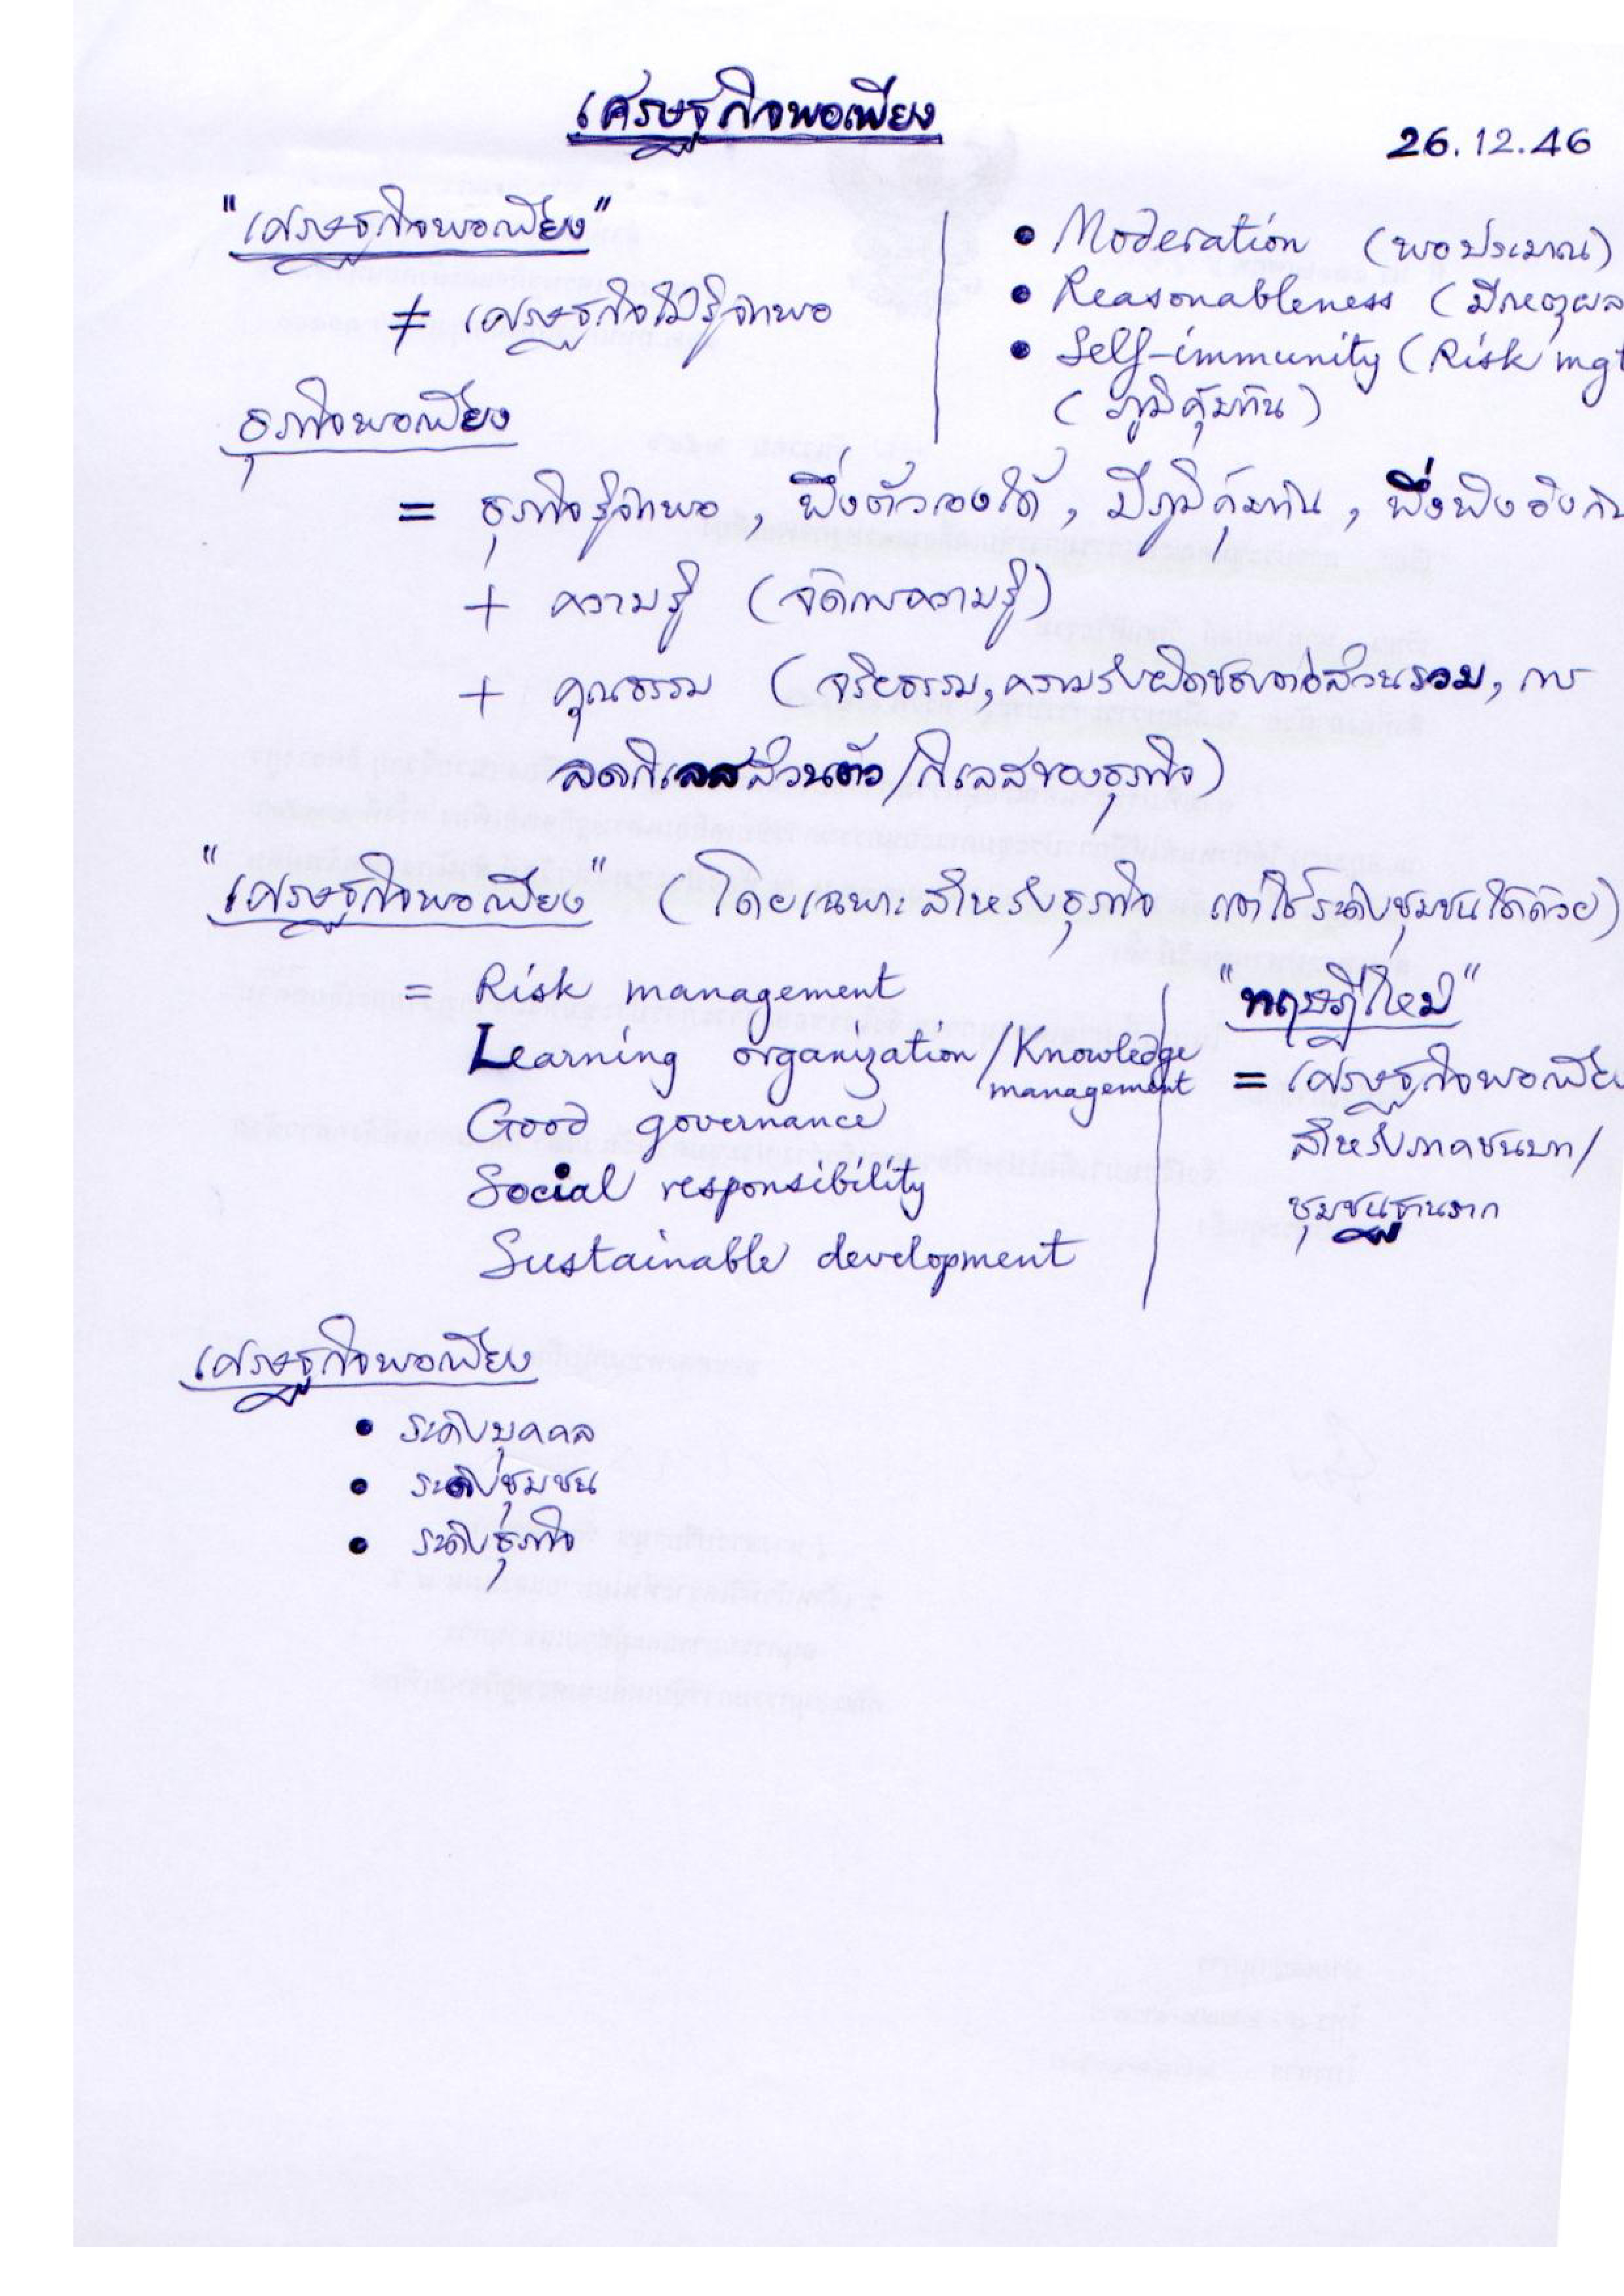 เศรษฐกิจพอเพียง
26.12.46
"เศรษฐกิจพอเพียง"
≠ เศรษฐกิจไม่รู้จักพอ
• Moderation (พอประมาณ)
• Reasonableness (มีเหตุผล
• Self-immunity (Risk mgt
(ภูมิคุ้มกัน)
ธุรกิจพอเพียง
= ธุรกิจรู้จักพอ, พึ่งตัวเองได้, มีภูมิคุ้มกัน, พึ่งพิงอิงกัน
+ ความรู้ (จัดการความรู้)
+ คุณธรรม (จริยธรรม, ความรับผิดชอบต่อส่วนรวม, การ
ลดกิเลสส่วนตัว/กิเลสของธุรกิจ)
"เศรษฐกิจพอเพียง" (โดยเฉพาะสำหรับธุรกิจ แต่ใช้ระดับชุมชนได้ด้วย)
= Risk management
Learning organization/Knowledge
management
Good governance
Social responsibility
Sustainable development
"ทฤษฎีใหม่"
= เศรษฐกิจพอเพียง
สำหรับภาคชนบท/
ชุมชนฐานราก
เศรษฐกิจพอเพียง
• ระดับบุคคล
• ระดับชุมชน
• ระดับธุรกิจ